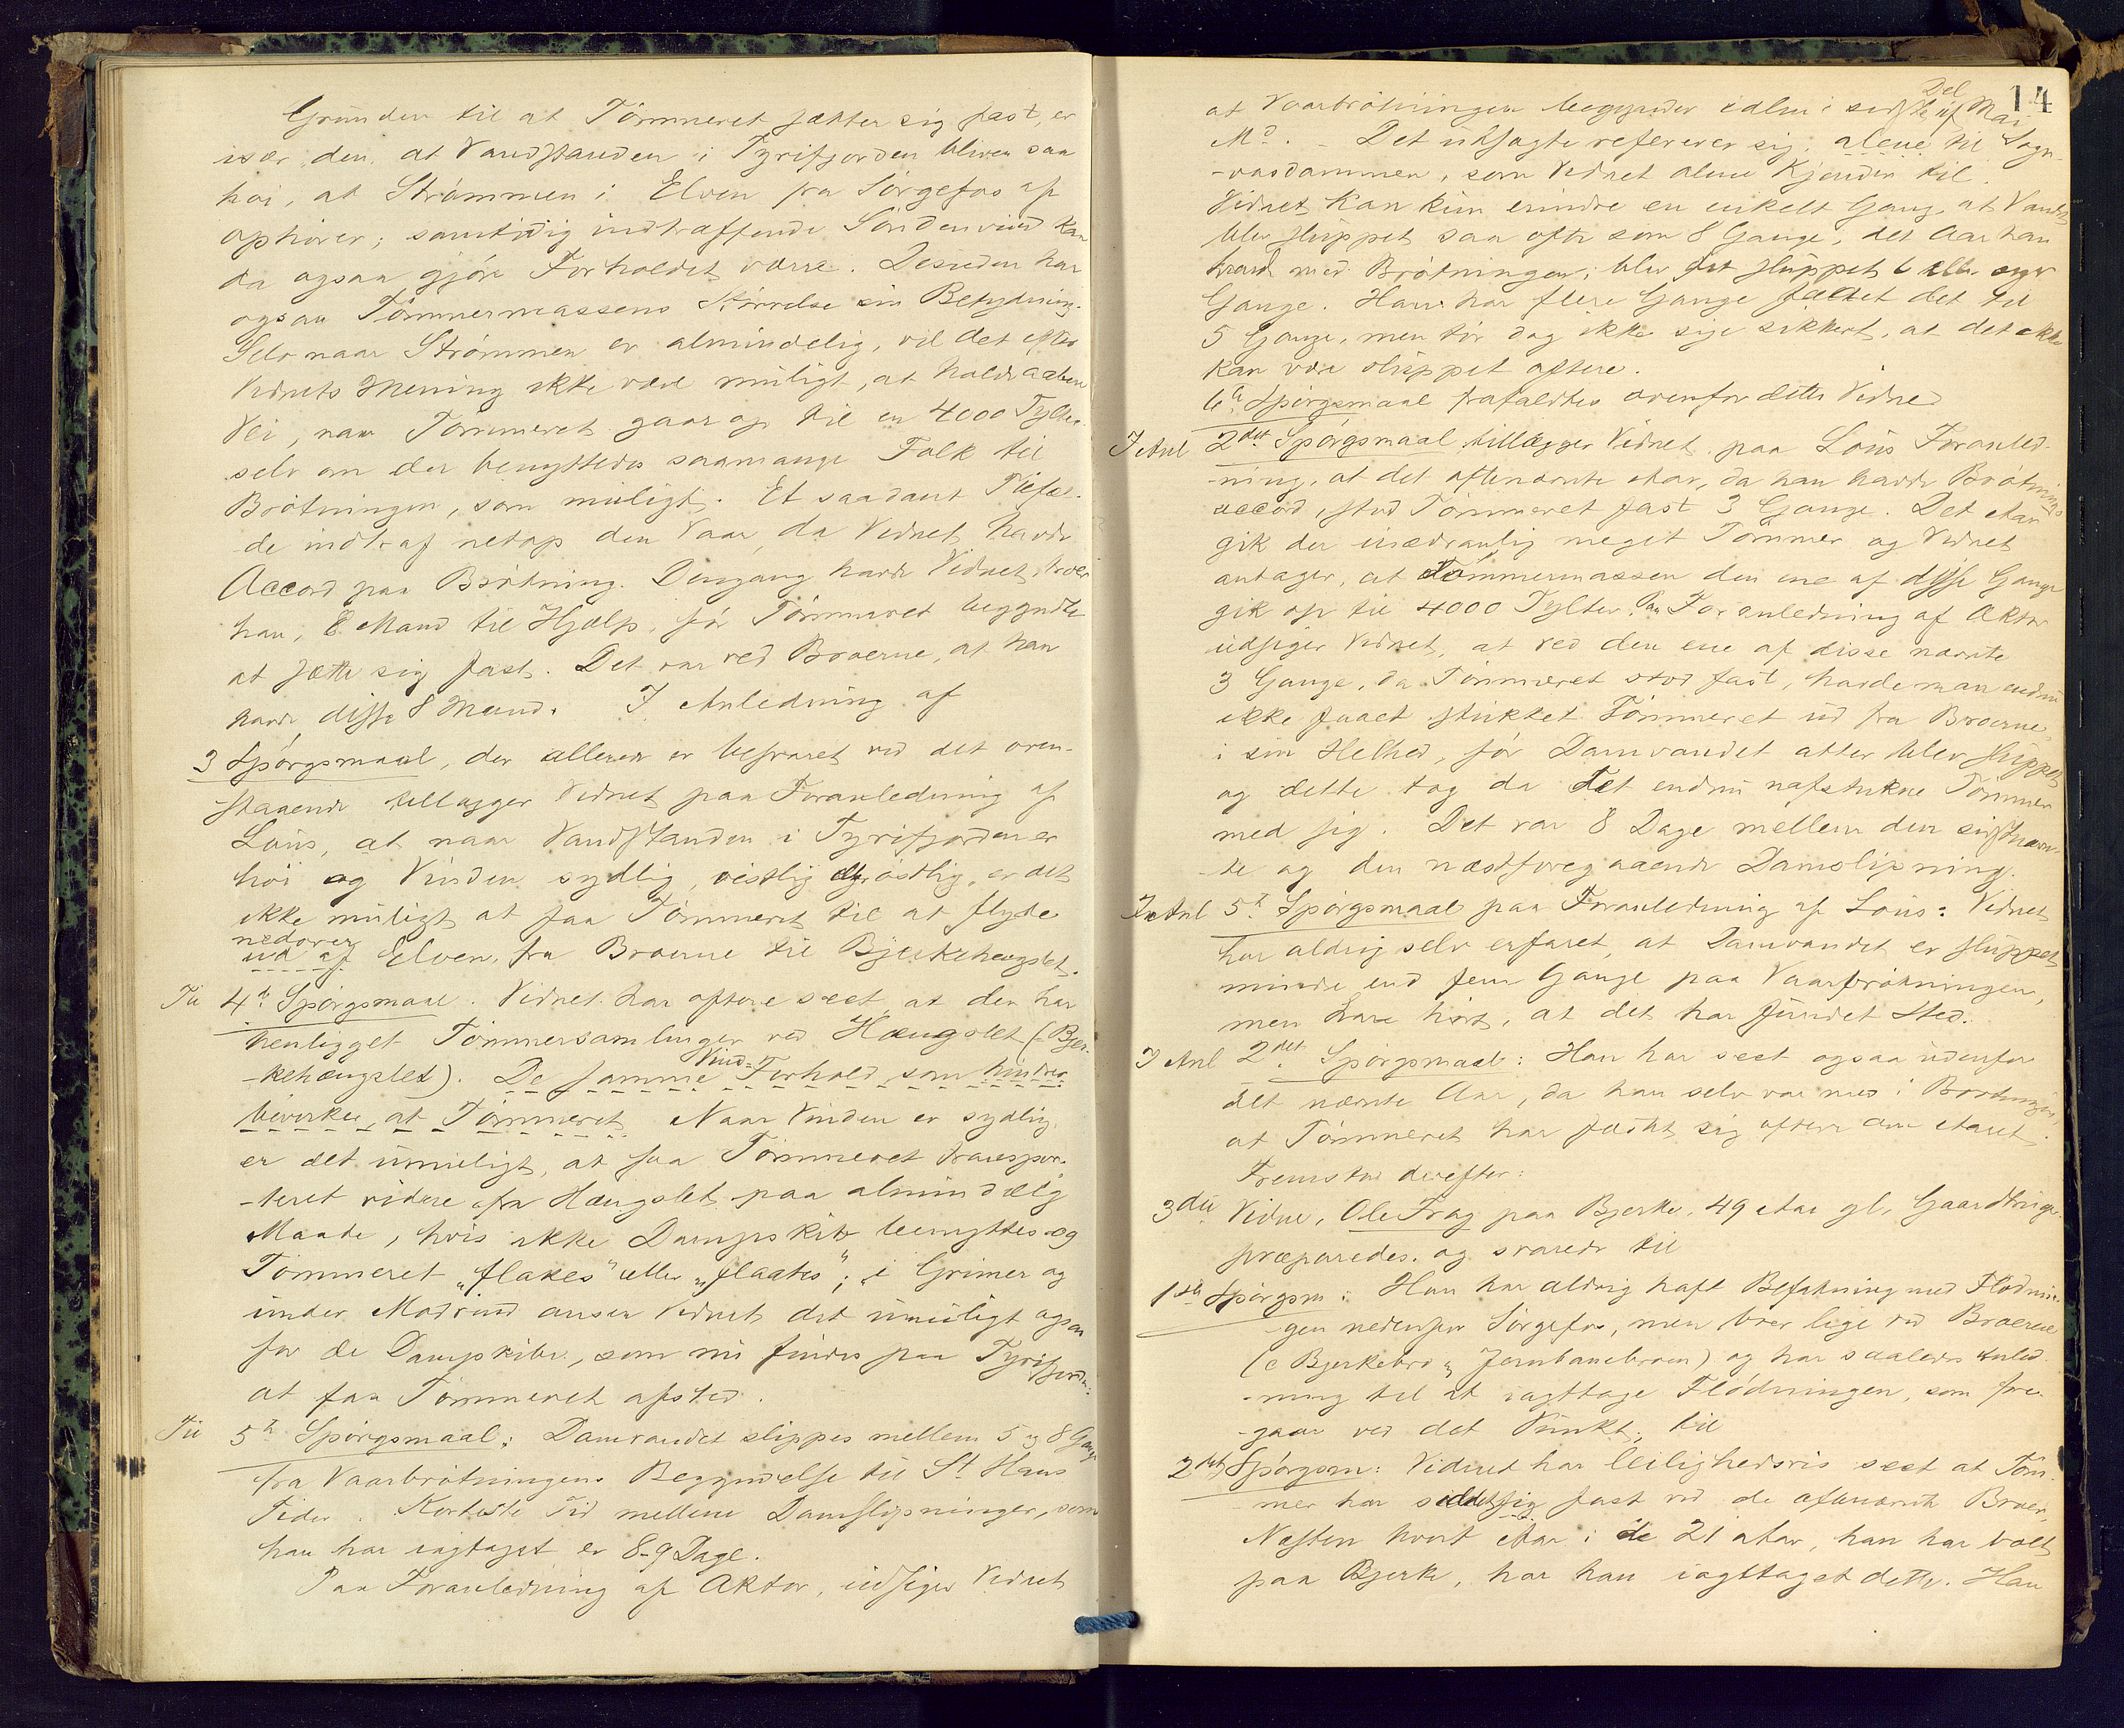 Grunden til at Tömmeret sætter sig fast, er
især den, at Vandstanden i Tyrifjorden bliver saa
höi, at Strömmen i Elven fra Sörgefos af
ophörer; samtidig indtræffende Söndenvind kan
da ogsaa gjöre Forholdet værre. Desuden har
ogsaa Tömmermassens Störrelse sin Betydning.
Selv naar Strömmen er almindelig, vil det efter
Vidnets Mening ikke være muligt, at holde aaben
Vei, naar Tömmeret gaar op til en 4000 Tylter
selv om der benyttedes saamange Folk til
Brötningen, som muligt. Et saadant Tilfæl-
de indtraf netop den Vaar, da Vidnet havde
Accord paa Brötning. Dengang havde Vidnet, tror
han, 8 Mand til Hjælp, för Tömmeret begyndte
at sætte sig fast. Det var ved Broerne, at han
havde disse 8 Mand. I Anledning af
3 Spörgsmaal, der allerede er besvaret ved det oven-
staaende tillægger Vidnet paa Foranledning af
Lous, at naar Vandstanden i Tyrifjorden er
höi og Vinden sydlig, vestlig eller östlig, er det
ikke muligt at faa Tömmeret til at flyde
nedover
ud af Elven, fra Broerne til Bjerkehengslet.
Til 4de Spörgsmaal. Vidnet har oftere seet, at der har
henligget Tömmersamlinger ved Hængslet (Bjer-
-kehængslet). De samme Vind-Forhold som hindrer
bevirker, at Tömmeret Naar Vinden er sydlig,
er det umuligt, at faa Tömmeret transpor-
-teret videre fra Hængslet paa almindelig
Maade, hvis ikke Dampskib benyttes og
Tömmeret "flakes" eller "flaates"; i Grimer og
under Modvind anser Vidnet det umuligt ogsaa
for de Dampskibe, som nu findes paa Tyrifjorden:
at faa Tömmeret afsted.
Til 5te Spörgsmaal: Damvandet slippes mellem 5 og 8 Gange
fra Vaarbrötningens Begyndelse til St Hans
Tider. Korteste Tid mellem Damslipninger, som
han har iagttaget er 8-9 Dage.
Paa Foranledning af Aktor, udsiger Vidnet
14
at Vaarbrötningen begynder idlm i sidste Del af Mai
Md. - Det udsagte refererer sig alene til Sogn-
-vasdammen, som Vidnet alene Kjender til.
Vidnet kan kun erindre en enkelt Gang, at Vandet
blev sluppet saa ofte som 8 Gange, det Aar han
havde med Brötningen; blev det sluppet 6 eller
Gange. Han har flere Gange talt det til
5 Gange, men tör dog ikke sige sikkert, at det ikke
kan være sluppet oftere.
6te Spörgsmaal frafaldtes ovenfor dette Vidne
I Anl 2det Spörgsmaal tillægger Vidnet paa Lous Foranled-
-ning, at det oftenævnte Aar, da han havde Brötnings
accord, stod Tömmeret fast 3 Gange. Det Aar
gik der usædvanlig meget Tömmer og Vidnet
antager, at Tömmermassen den ene af disse Gange
gik op til 4000 Tylter. Paa Foranledning af Aktor
udsiger Vidnet, at ved den ene af disse nævnte
3 Gange, da Tömmeret stod fast, havde man endnu
ikke faaet stukket Tömmeret ud fra Broerne
i sin Helhed, för Damvandet atter blev sluppet
og dette tog da det endnu uafstukne Tömmer
med sig. Det var 8 Dage mellem den sidstnævn-
te og den næstforegaaende Damslipning.
I Anl 5te Spörgsmaal paa Foranledning af Lous: Vidnet
har aldrig selv erfaret, at Damvandet er sluppet
mindre end fem Gange paa Vaarbrötningen,
men bare hört, at det har fundet Sted.
I Anl 2det Spörgsmaal: Han har seet ogsaa udenfor
det nævnte Aar, da han selv var med i Brötningen,
at Tömmeret har fæstet sig oftere om Aaret.
Fremstod derefter:
3die Vidne, Ole Frog paa Bjerke, 49 Aar gl, Gaardbruger
præparedes. og svarede til
1ste Spörgsm: Han har aldrig haft Befatning med Flödnin-
-gen nedenfor Sörgefos, men bor lige ved Broerne
(o: Bjerkebro og Jernbanebroen) og har saaledes Anled-
-ning til at iagttage Flödningen, som fore-
-gaar ved det Punkt, til
2det Spörgsm: Vidnet har leilighedsvis seet at Töm-
mer har siddet sig fast ved de oftenævnte Broer,
Næsten hvert Aar i de 21 Aar, han har boet
paa Bjerke, har han iagttaget dette. Han